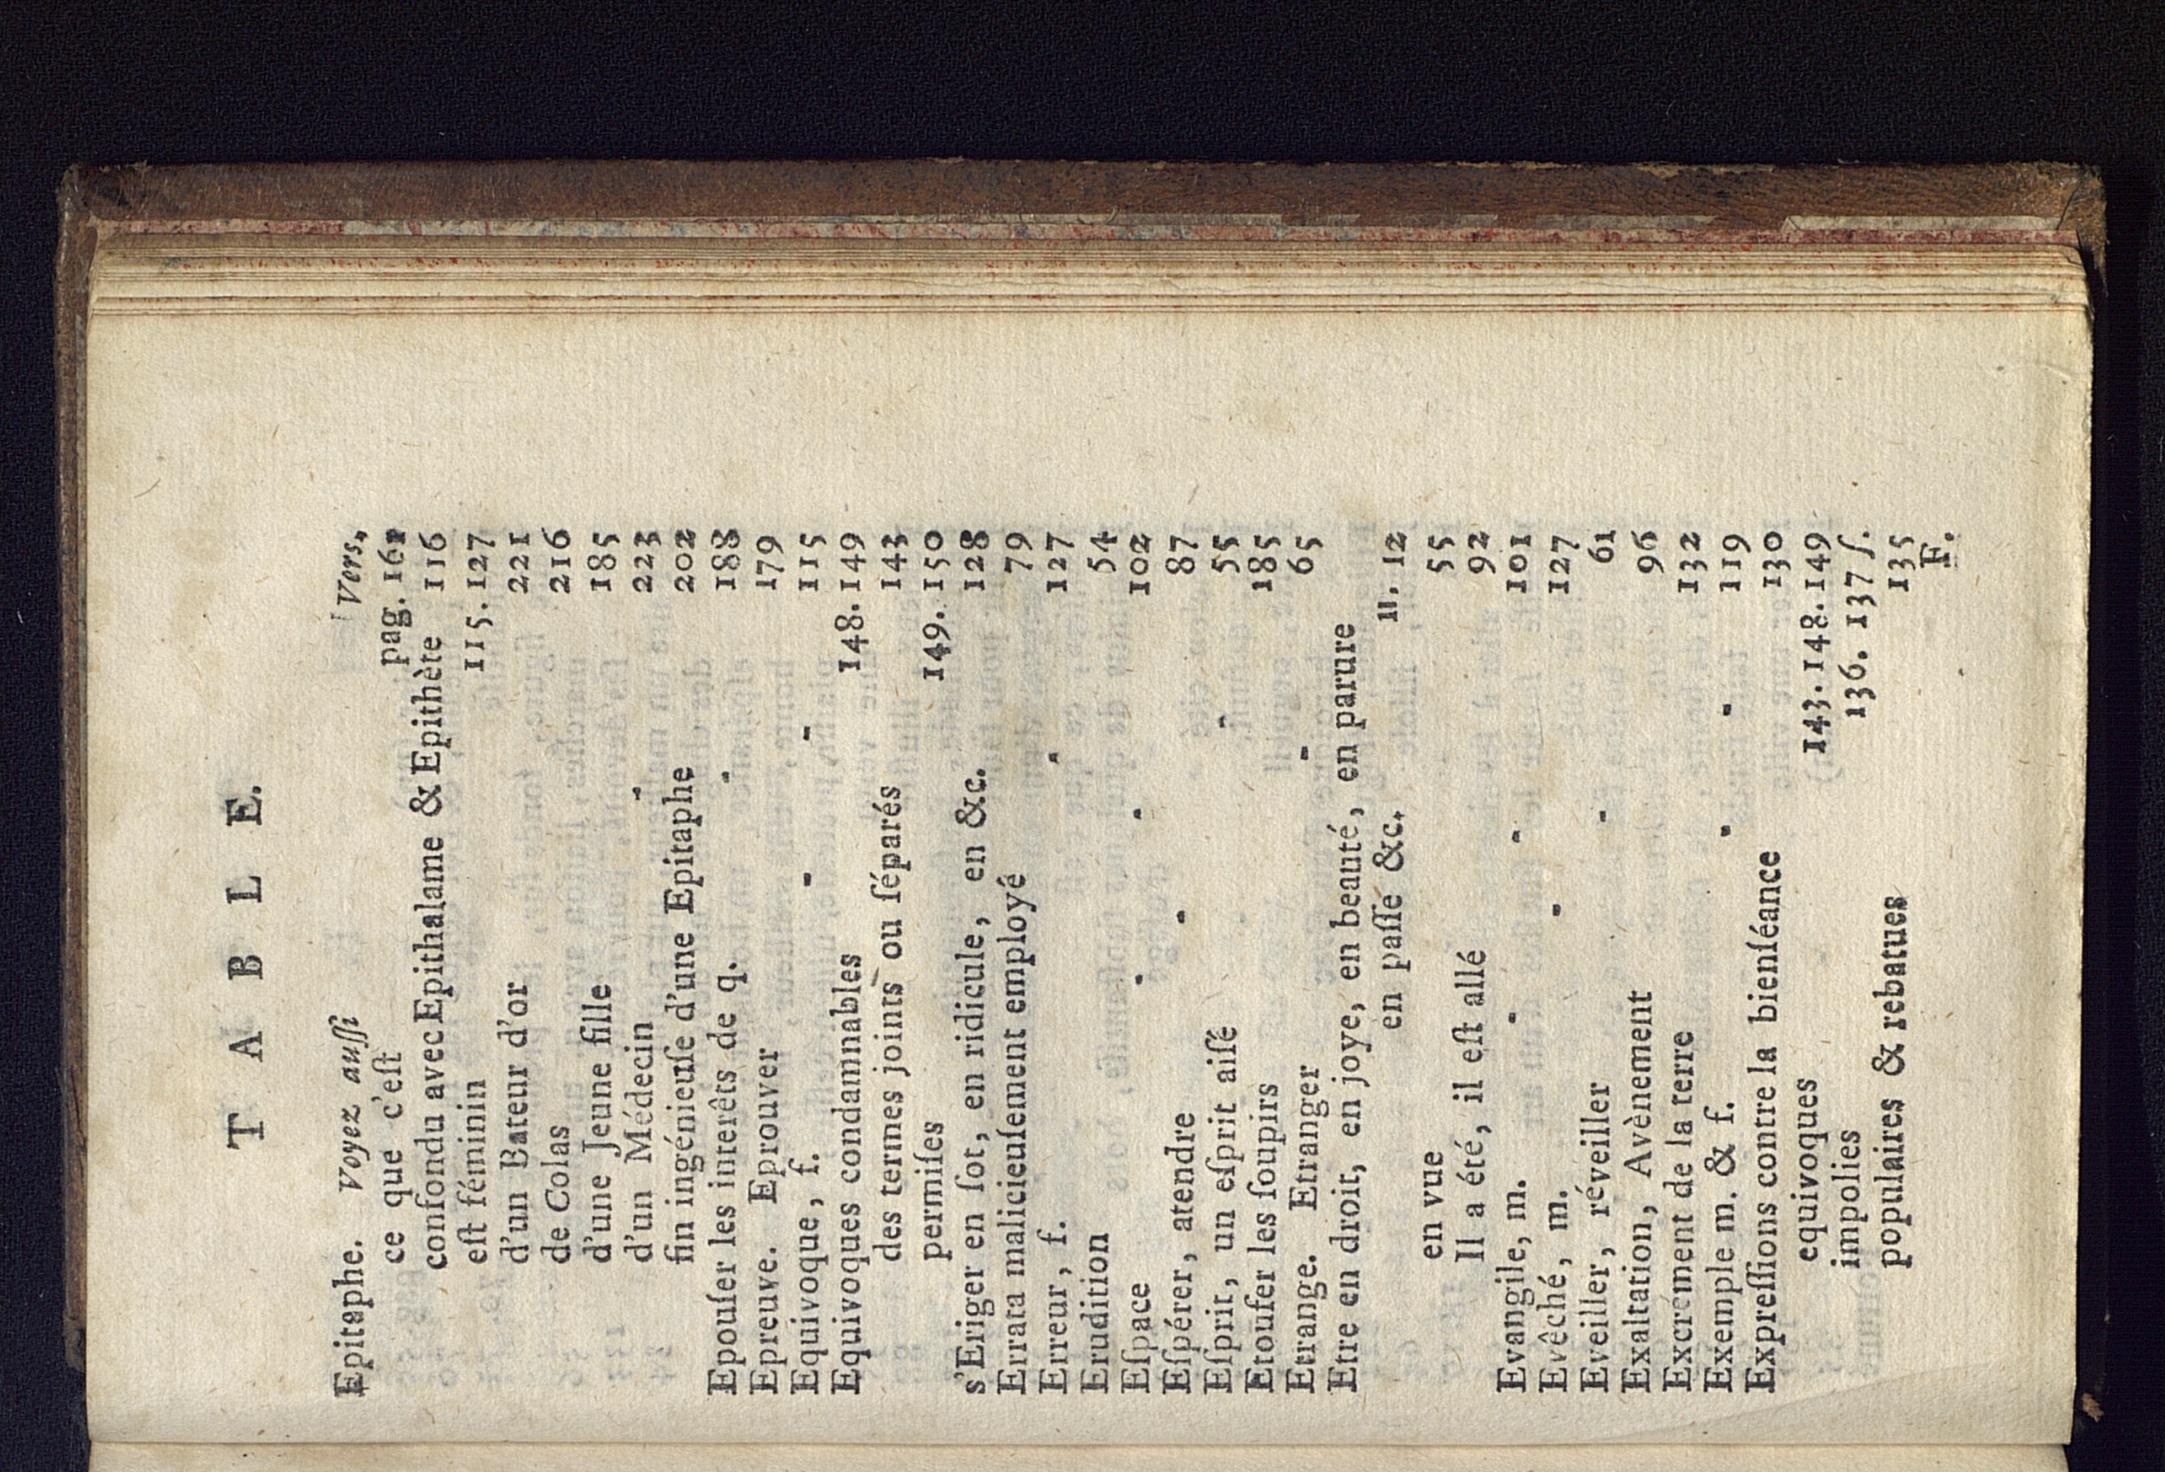 T A B L E.
Epitaphe. Voyez auſſi Vers,
ce que c'eſt pag. 162
confondu avec Epithalame & Epithète 116
eſt féminin 115. 127
d'un Bateur d'or 221
de Colas 216
d'une Jeune fille 185
d'un Médecin - 223
fin ingénieuſe d'une Epitaphe 202
Epouſer les interêts de q. - 188
Epreuve. Eprouver 179
Equivoque, f. - - 115
Equivoques condamnables 148. 149
des termes joints ou ſéparés 143
permiſes 149. 150
s'Eriger en ſot, en ridicule, en &c. 128
Errata malicieuſement employé 79
Erreur, f. - 127
Erudition 54
Eſpace - - 102
Eſpérer, atendre - 87
Eſprit, un eſprit aiſé - 55
Etoufer les ſoupirs 185
Etrange. Etranger - 65
Etre en droit, en joye, en beauté, en parure
en paſſe &c. 11. 12
en vue 55
Il a été, il eſt allé 92
Evangile, m. - - 101
Evêché, m. - 127
Eveiller, réveiller - 61
Exaltation, Avènement 96
Excrement de la terre 132
Exemple m. & f. - - 119
Expreſſions contre la bienſéance 130
equivoques 143. 148. 149
impolies 136. 137 ſ.
populaires & rebatues 135
F.